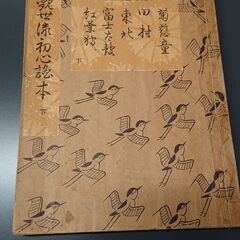 観世流初心謡本 下
菊慈童
田村
東北
富士太鼓
紅葉狩
下